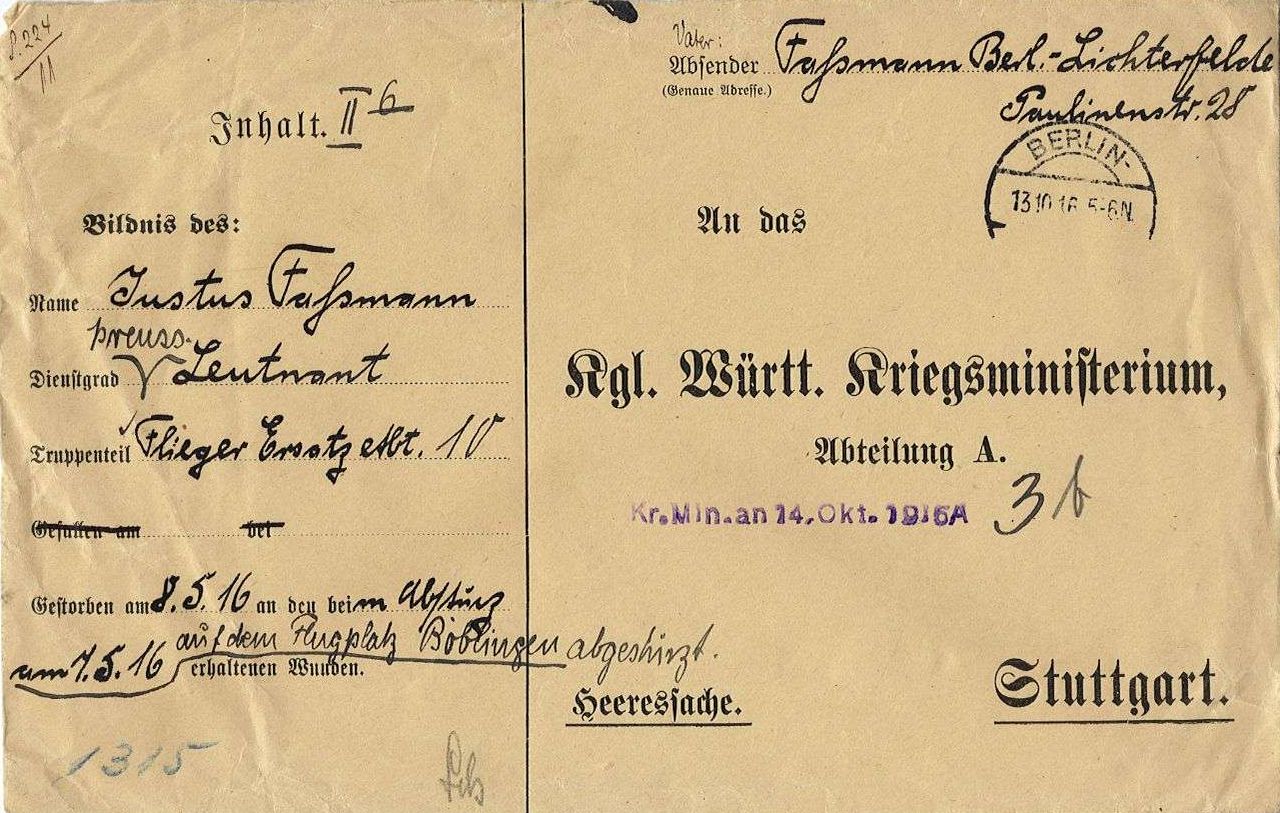 S. 224
11
Inhalt. II 6
Bildnis des:
Name Justus Faßmann
preuss.
Dienstgrad Leutnant
Truppenteil Flieger Ersatz Abt. 10
Gefallen am bei
Gestorben am 8. 5. 16 an den beim Absturz
auf dem Flugplatz Böblingen abgestürzt.
am 7. 5. 16 erhaltenen Wunden.
1315
Vater:
Absender Faßmann Berl.-Lichterfelde
(Genaue Adresse.)
Paulinenstr. 28
BERLIN-
13.10.16. 5-6N.
An das
Kgl. Württ. Kriegsministerium,
Abteilung A.
Kr.Min.an 14. Okt. 1916A 3b
Heeressache.
Stuttgart.